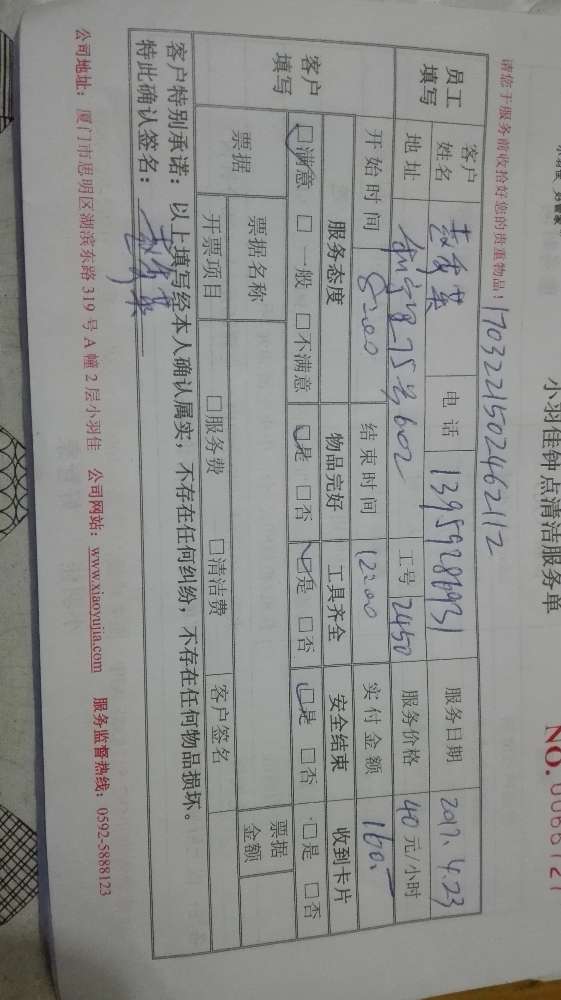 小羽佳钟点清洁服务单
NO. 0066727
请您于服务前收拾好您的贵重物品！1703221502462112
员工填写 客户姓名 电话 13959286931 服务日期 2017.4.23
地址 75号602 工号 2450 服务价格 40元/小时
开始时间 8:00 结束时间 12:00 实付金额 160.-
客户填写 服务态度 物品完好 工具齐全 安全结束 收到卡片
□满意 □一般 □不满意 □是 □否 □是 □否 □是 □否 □是 □否
票据 票据名称 票据金额
开票项目 □服务费 □清洁费 客户签名
客户特别承诺：以上填写经本人确认属实，不存在任何纠纷，不存在任何物品损坏。
特此确认签名：
公司地址：厦门市思明区湖滨东路319号A幢2层小羽佳 公司网站：www.xiaoyujia.com 服务监督热线：0592-5888123